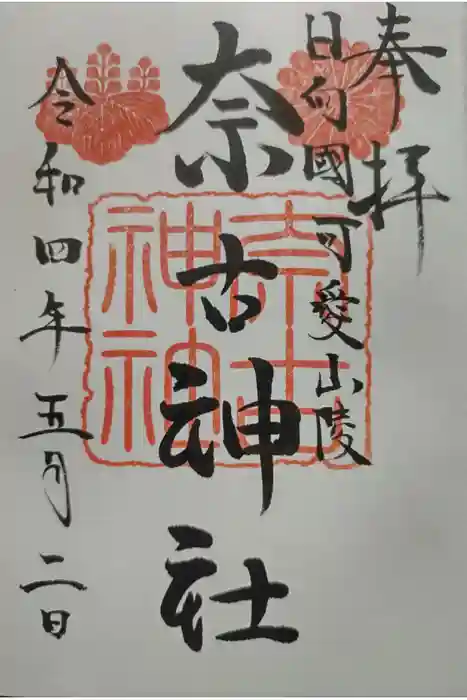 奉拝
日向國可愛山陵
奈古神社
令和四年五月二日
奈古神社